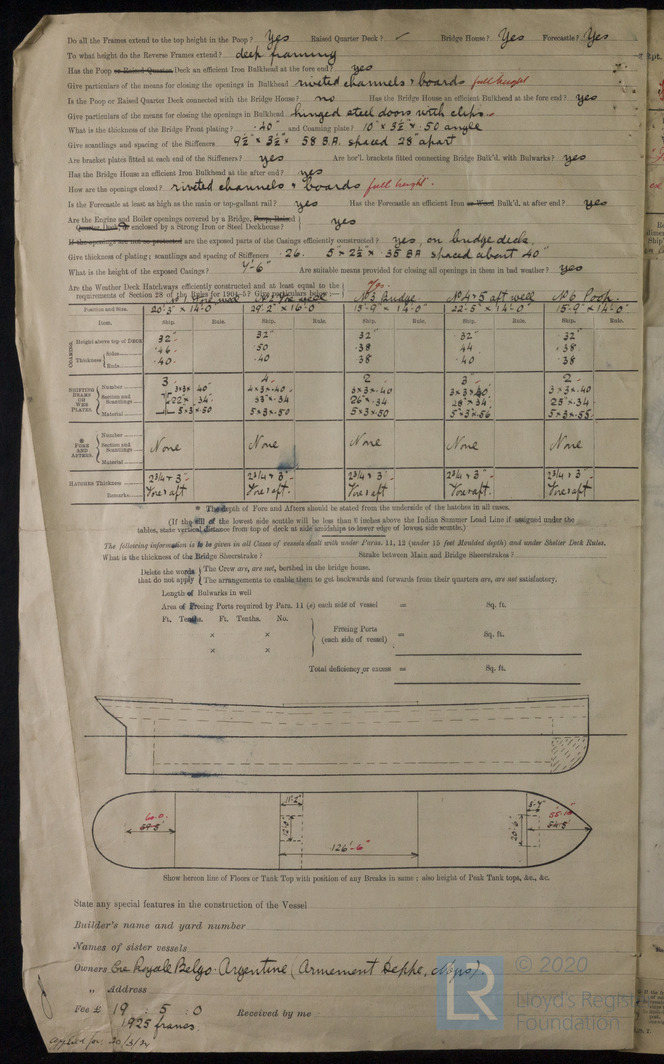 Do all the Frames extend to the top height in the Poop? Yes Raised Quarter Deck? ✓ Bridge House? Yes Forecastle? Yes
To what height do the Reverse Frames extend? deck framing
Has the Poop or Raised Quarter Deck an efficient Iron Bulkhead at the fore end? yes
Give particulars of the means for closing the openings in Bulkhead riveted channels & boards full height
Is the Poop or Raised Quarter Deck connected with the Bridge House? no Has the Bridge House an efficient Bulkhead at the fore end? yes
Give particulars of the means for closing the openings in Bulkhead hinged steel doors with clips.
What is the thickness of the Bridge Front plating? .40" and Coaming plate? 10" × 3½" × .50 angle
Give scantlings and spacing of the Stiffeners 9½ × 3½ × 58 B.A. spaced 28" apart
Are bracket plates fitted at each end of the Stiffeners? yes Are hor'l. brackets fitted connecting Bridge Bulk'd. with Bulwarks? yes
Has the Bridge House an efficient Iron Bulkhead at the after end? yes
How are the openings closed? riveted channels & boards full height.
Is the Forecastle at least as high as the main or top-gallant rail? yes Has the Forecastle an efficient Iron or Wood Bulk'd. at after end? yes
Are the Engine and Boiler openings covered by a Bridge, Poop, Raised
Quarter Deck or enclosed by a Strong Iron or Steel Deckhouse? yes
If the openings are not so protected are the exposed parts of the Casings efficiently constructed? yes, on bridge deck.
Give thickness of plating; scantlings and spacing of Stiffeners .26. 5 × 2½ × .35 BA spaced about 40"
What is the height of the exposed Casings? 7'-6" Are suitable means provided for closing all openings in them in bad weather? yes
Are the Weather Deck Hatchways efficiently constructed and at least equal to the
requirements of Section 28 of the Rules for 1904-5? Give particulars below:— Yes.
No 3 Bridge No 4 & 5 aft well No 6 Poop.
Position and Size. 20'-3" × 14'-0 29'-2" × 16'-0 15'-9" × 14'-0" 22'-5" × 14'-0" 15'-9" × 14'-0"
Item. Ship. Rule. Ship. Rule. Ship. Rule. Ship. Rule. Ship. Rule.
COAMING Height above top of DECK 32" 32" 32" 32" 32"
Thickness Sides .46 .50 .38 .44 .38
Ends .40 .40 38 .40 .38
SHIFTING BEAMS OR WEB PLATES. Number 3 4 2 3 2
Section and Scantlings 3×3× 40" 4×3×.40 3×3×.40 3×3×.40 3×3×.40
22" × .34 33" × .34 26" × .34 28" × 34 25" × .34
Material 5×3×.50 5×3×.50 5×3×.50 5×3×.56 5×3×.55
FORE AND AFTERS. Number
Section and Scantlings None None None None None
Material
HATCHES Thickness 2¾ & 3" 2¾ & 3" 2¾ & 3" 2¾ & 3" 2¾ & 3"
Remarks Fore & aft Fore & aft. Fore & aft Fore & aft. Fore & aft
* The depth of Fore and Afters should be stated from the underside of the hatches in all cases.
(If the sill of the lowest side scuttle will be less than 6 inches above the Indian Summer Load Line if assigned under the
tables, state vertical distance from top of deck at side amidships to lower edge of lowest side scuttle.)
The following information is to be given in all Cases of vessels dealt with under Paras. 11, 12 (under 15 feet Moulded depth) and under Shelter Deck Rules.
What is the thickness of the Bridge Sheerstrake? Strake between Main and Bridge Sheerstrakes?
Delete the words The Crew are, are not, berthed in the bridge house.
that do not apply The arrangements to enable them to get backwards and forwards from their quarters are, are not satisfactory.
Length of Bulwarks in well
Area of Freeing Ports required by Para. 11 (e) each side of vessel = Sq. ft.
Ft. Tenths. Ft. Tenths. No.
× × Freeing Ports = Sq. ft.
× × (each side of vessel)
Total deficiency or excess = Sq. ft.
60.0.
59'-3"
126'-6"
20'-6"
5'-7"
55'-10"
54'-3"
Show hereon line of Floors or Tank Top with position of any Breaks in same; also height of Peak Tank tops, &c., &c.
State any special features in the construction of the Vessel
Builder's name and yard number
Names of sister vessels
Owners Cie Royale Belgo-Argentine (Armement Deppe, Mgrs)
" Address
Fee £ 19 : 5 : 0 Received by me
1925 francs.
Applied for: 20/3/34
LR © 2020
Lloyd's Register
Foundation